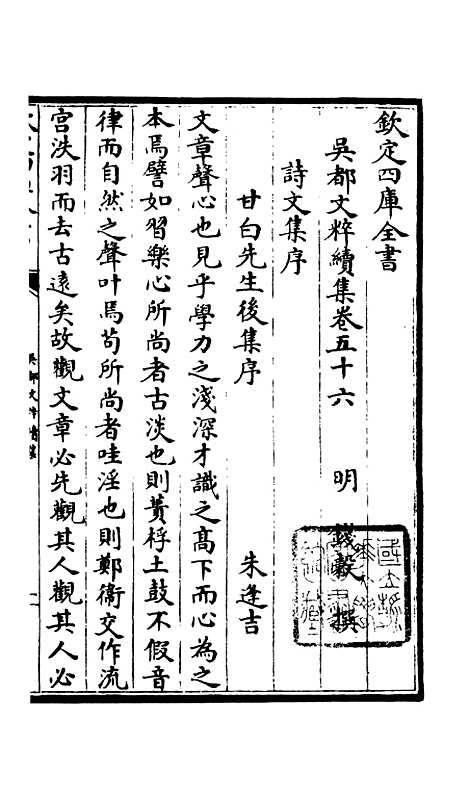 欽定四庫全書
吳都文粹續集卷五十六　明　錢穀　撰
詩文集序
甘白先生後集序　朱逢吉
文章聲心也見乎學力之淺深才識之高下而心為之
本焉譬如習樂心所尚者古淡也則蕢桴土鼓不假音
律而自然之聲叶焉苟所尚者哇淫也則鄭衛交作流
宫泆羽而去古遠矣故觀文章必先觀其人觀其人必
吳都文粹續集